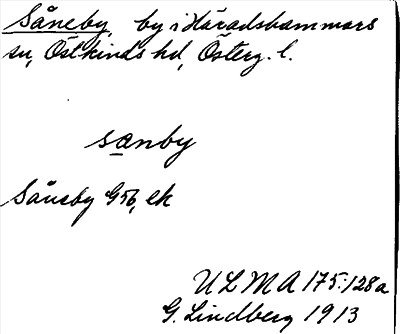 Såneby, by i Häradshammars
sn, Östkinds hd, Österg. l.
sanby
Såneby G56, ek
ULMA 175:128a
G. Lindberg 1913